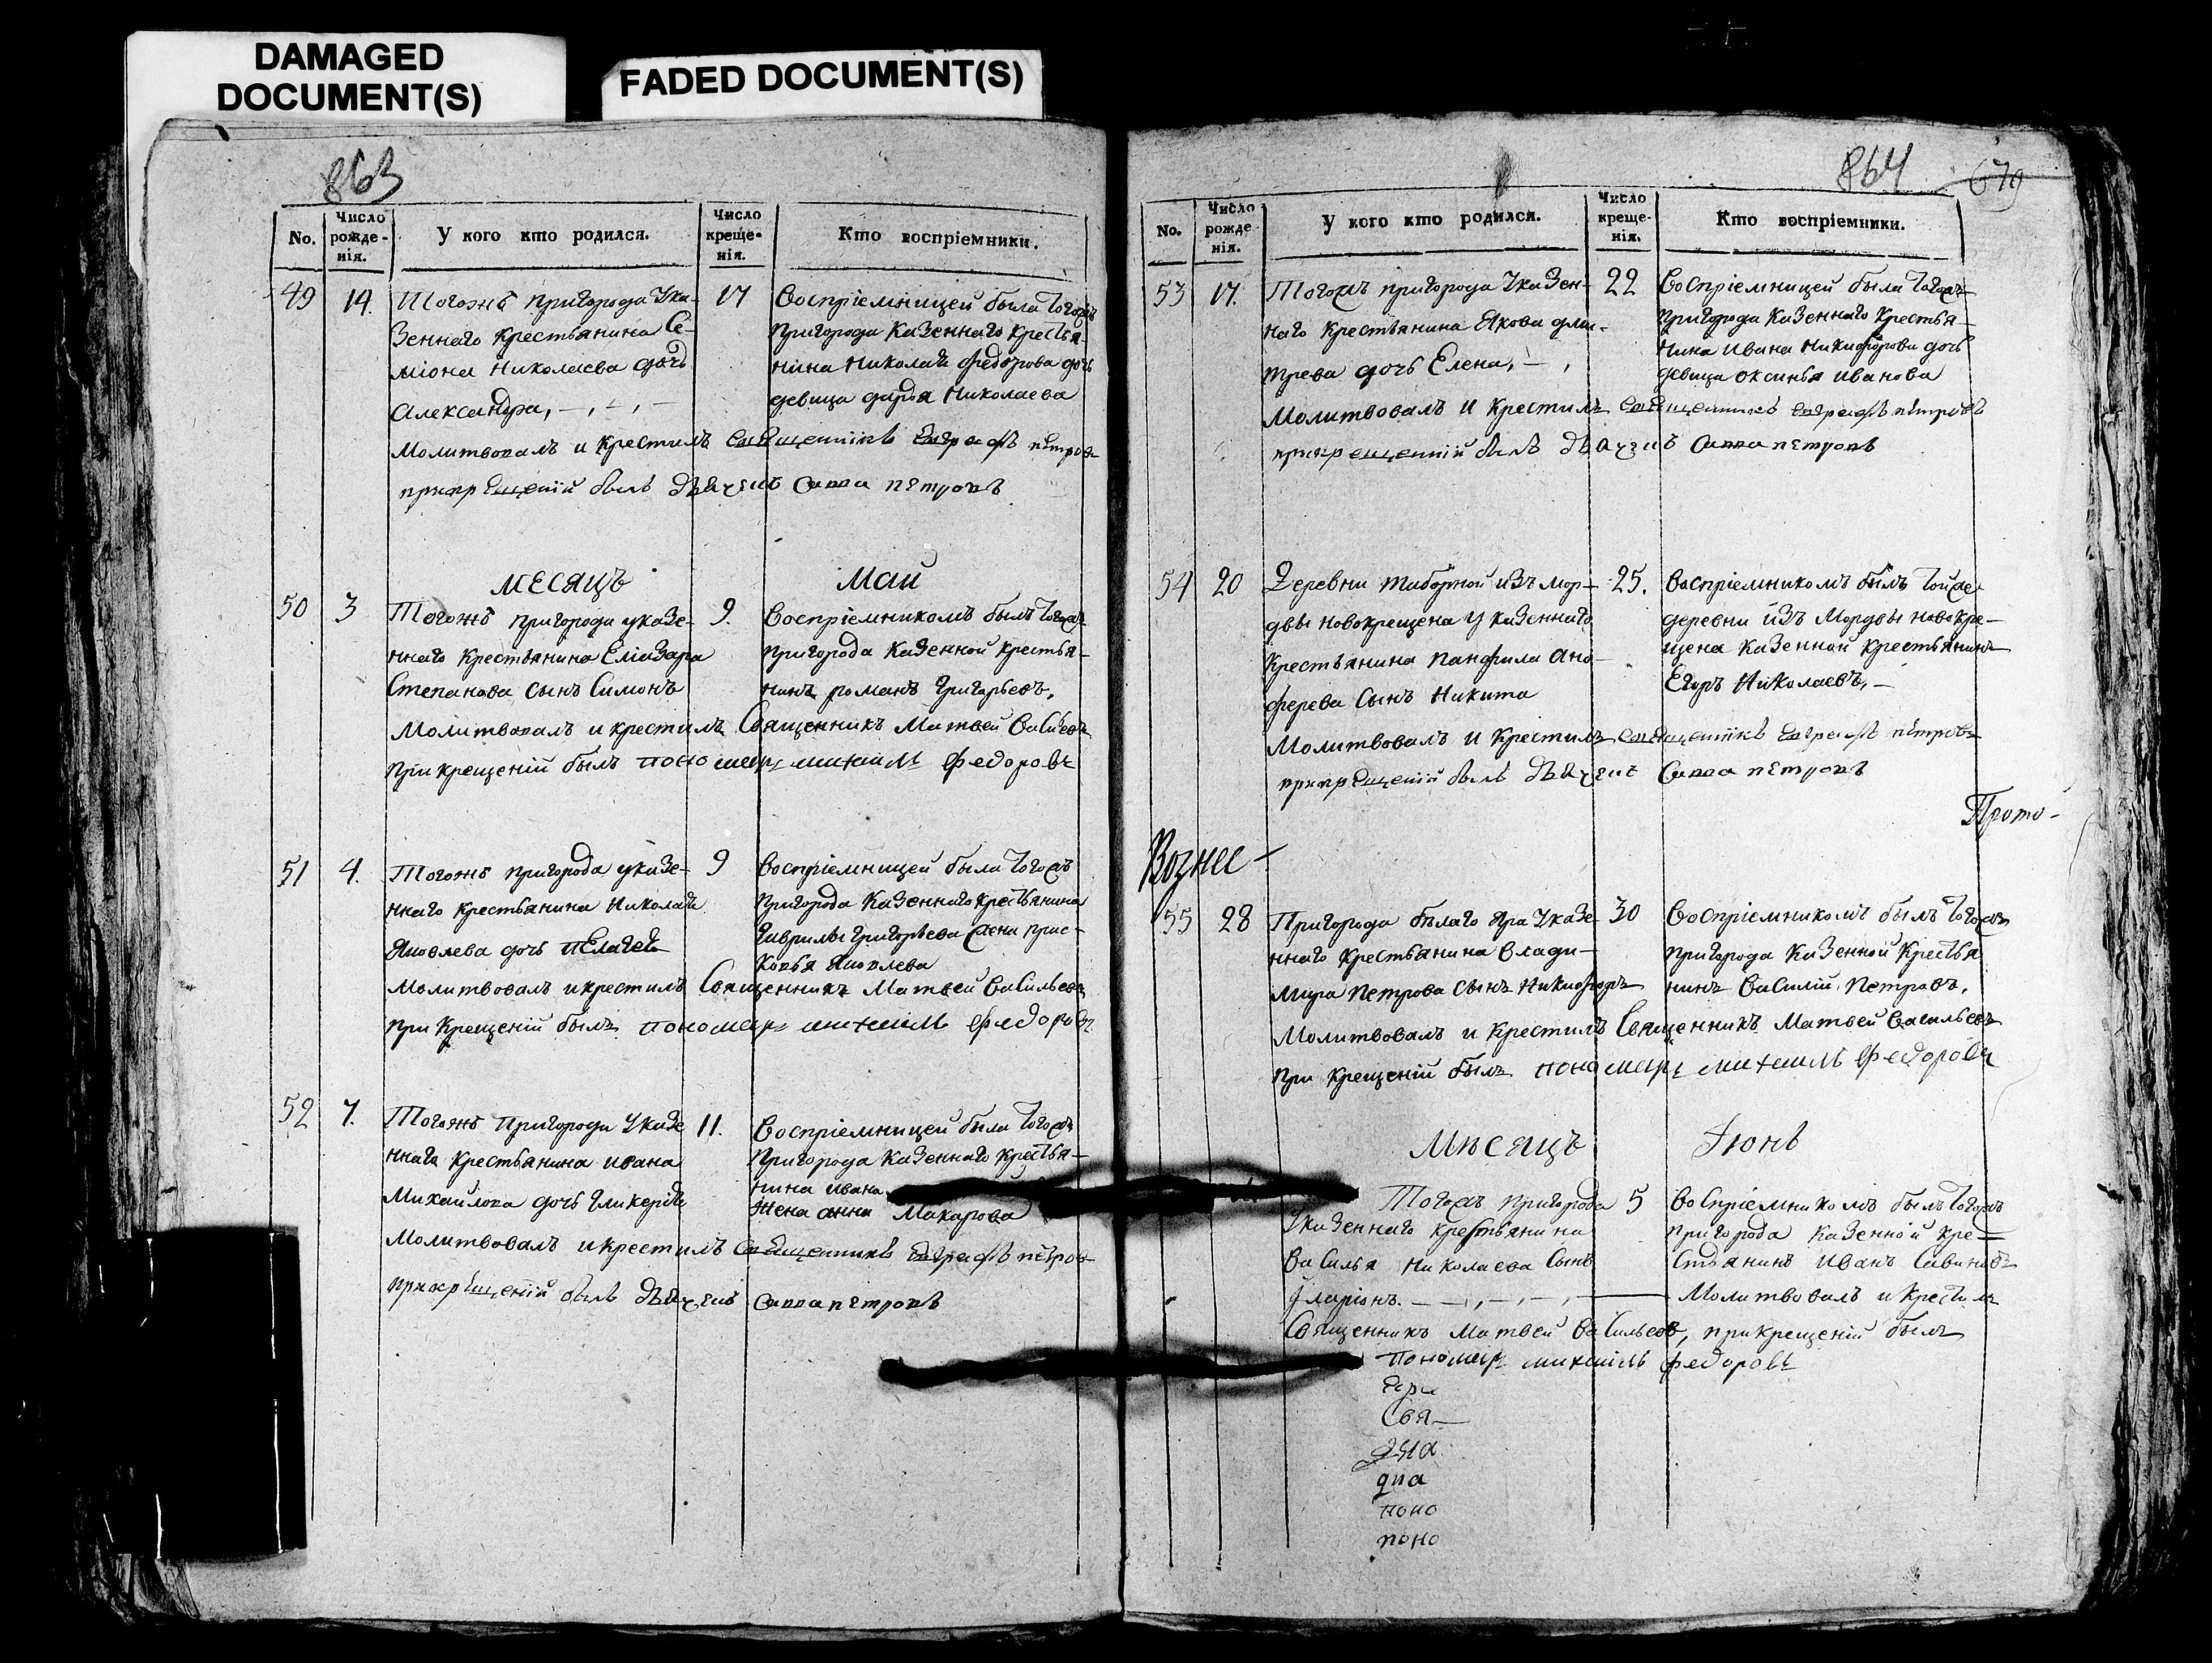 DAMAGED
DOCUMENT(S)
FADED DOCUMENT(S)
863
No.
Число рожденія.
У кого кто родился.
Число крещенія.
Кто воспріемники.
49 14. Тогожъ пригорода Ука- 17
зеннаго крестьянина Се-
міона Николаева дочь
Александра,
Воспріемницей была тогожъ
пригорода Казеннаго крестья-
нина Николая Федорова дочь
девица дарья Николаева
Молитвовалъ и крестилъ священникъ Евграфъ петровъ
прикрещеніи былъ дьяченъ Савва петровъ
месяцъ Май
50 3 Тогожъ пригорода указе- 9.
ннаго крестьянина Еліазара
Степанова сынъ Симонъ
Воспріемникомъ былъ тогожъ
пригорода казенной крестья-
нинъ романъ Григорьевъ,
Молитвовалъ и крестилъ Священникъ Матвей Васильевъ
При крещеніи былъ пономарь михаилъ Федоровъ
51 4. Тогожъ пригорода указе- 9
ннаго крестьянина Николая
Яковлева дочь пелагея
Воспріемницей была тогожъ
пригорода Казеннаго крестьянина
Гаврилы Григорьева жена прас-
ковья Яковлева
Молитвовалъ и крестилъ Священникъ Матвей Васильевъ
при Крещеніи былъ пономарь михаилъ федоровъ
52 7. Тогожъ Пригорода Указе 11.
ннаго крестьянина ивана
Михаилова дочь гликерія
Воспріемницей была тогожъ
Пригорода казеннаго крестья-
нина ивана
жена анна Макарова
Молитвовалъ и крестилъ священникъ Евграфъ петров
прикрещеніи былъ дьяченъ савва петровъ
864
679
No.
Число рожденія.
У кого кто родился.
Число крещенія.
Кто воспріемники.
53 17. Тогожъ пригорода Указен- 22
наго крестьянина Якова дми-
трева дочь Елена,
Воспріемницей была тогожъ
пригорода Казеннаго крестья-
нина Ивана Никифорова дочь
девица оксинья иванова
Молитвовалъ и крестилъ священникъ Евграфъ петровъ
прикрещеніи былъ дьяченъ Савва петровъ
54 20 Деревни Таборной изъ мор- 25.
двы новокрещена у казеннаго
крестьянина Панфила Ано-
ферева Сынъ Никита
Воспріемникомъ былъ тойже
деревни изъ Мордвы новокре-
щена казенной крестьянинъ
Егоръ Николаевъ,
Молитвовалъ и Крестилъ священникъ Евграфъ петровъ
прикрещеніи былъ дьяченъ Савва петровъ
Прото-
Вознес-
55 28 Пригорода белаго Яра Указе 30
ннаго крестьянина Влади-
мира Петрова сынъ Никифоръ
Воспріемникомъ былъ тогожъ
пригорода Казенной крестья
нинъ Василій Петровъ,
Молитвовалъ и крестилъ Священникъ Матвей Васильевъ
При крещеніи былъ пономарь михаилъ Федоровъ
Месяцъ Іюнь
Тогожъ пригорода 5
Указеннаго крестьянина
Василья Николаева Сынъ
Іларіонъ.
Воспріемникомъ былъ тогожъ
пригорода казенной кре-
стьянинъ Иванъ Савиновъ
Молитвовалъ и крестилъ
Священникъ Матвей Васильевъ, прикрещеніи былъ
пономарь михаилъ федоровъ
Свя
диа
поно
поно